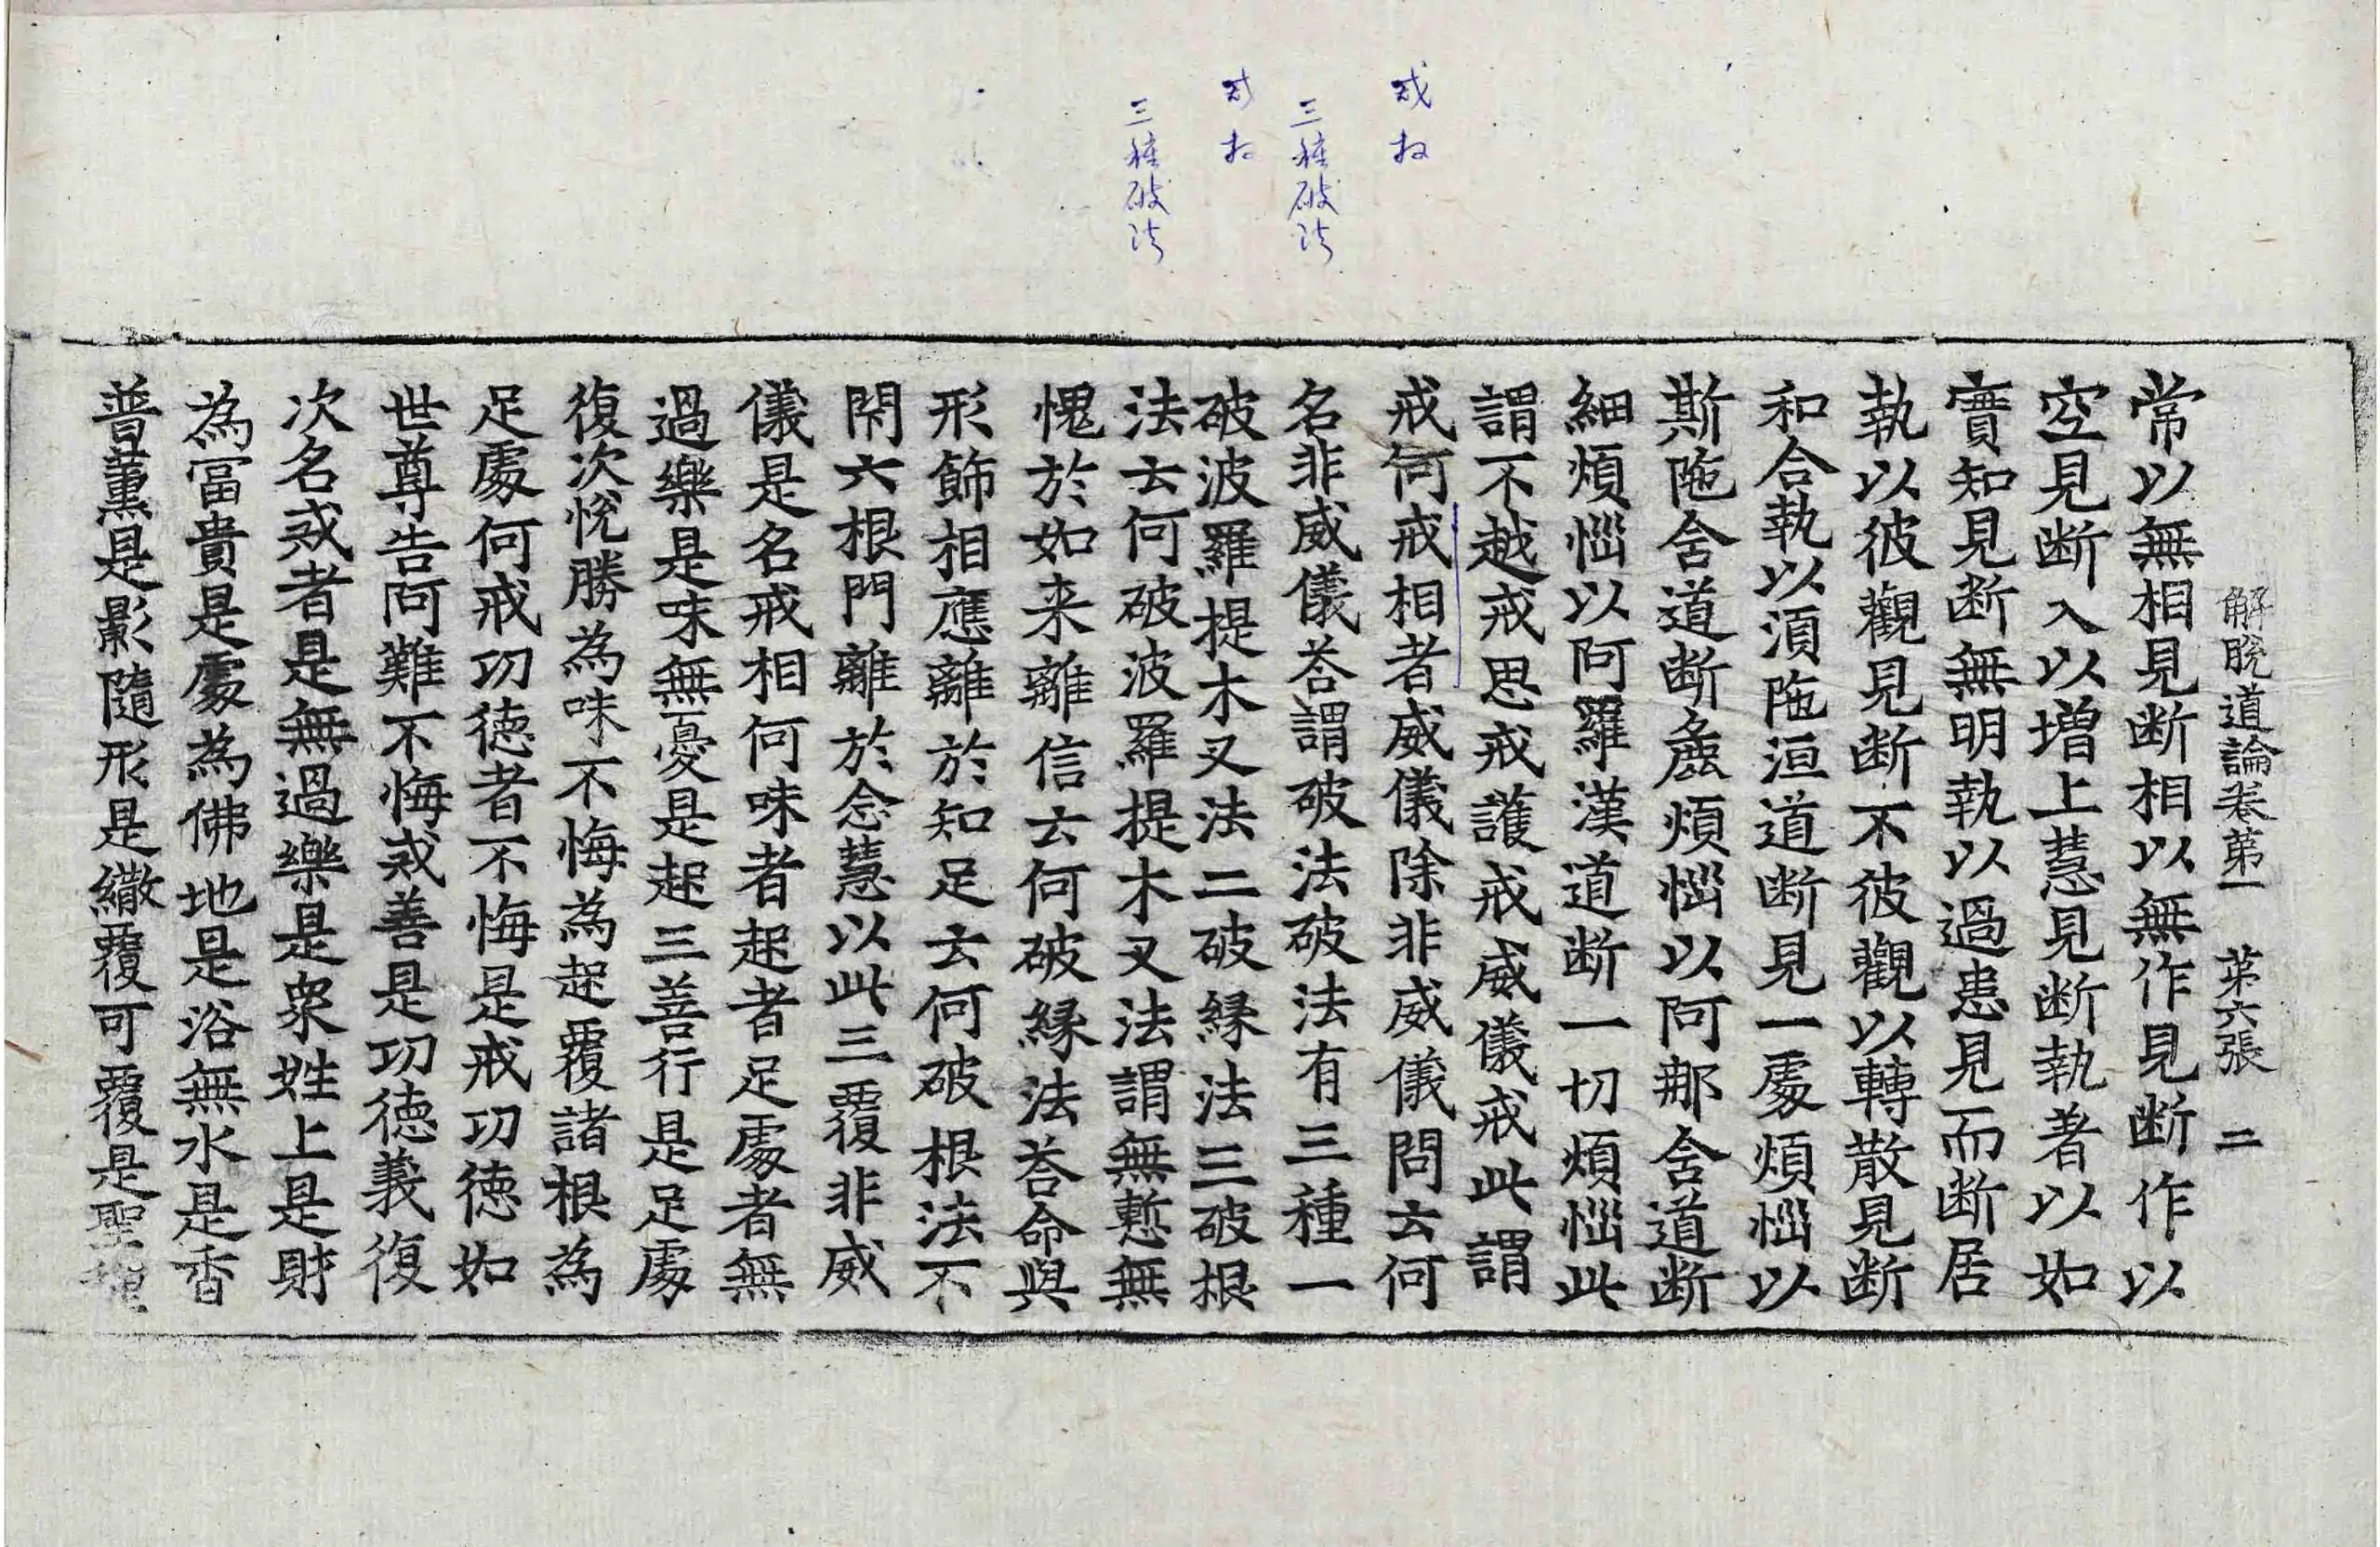 戒相
三種破法
戒相
三種破法
解脫道論卷第一 第六張 二
常以無相見断相以無作見断作以
空見断入以增上慧見断執著以如
實知見断無明執以過患見而断居
執以彼觀見断不彼觀以轉散見断
和合執以須陁洹道断見一處煩惱以
斯陁含道断麁煩惱以阿那含道断
細煩惱以阿羅漢道断一切煩惱此
謂不越戒思戒護戒威儀戒此謂
戒何戒相者威儀除非威儀問云何
名非威儀荅謂破法破法有三種一
破波羅提木叉法二破縁法三破根
法云何破波羅提木叉法謂無慙無
愧於如来離信云何破縁法荅命與
形飾相應離於知足云何破根法不
閇六根門離於念慧以此三覆非威
儀是名戒相何味者起者足處者無
過樂是味無憂是起三善行是足處
復次悅勝為味不悔為起覆諸根為
足處何戒功德者不悔是戒功德如
世尊告阿難不悔戒善是功德義復
次名戒者是無過樂是衆姓上是財
為冨貴是處為佛地是浴無水是香
普薰是影隨形是繖覆可覆是聖種